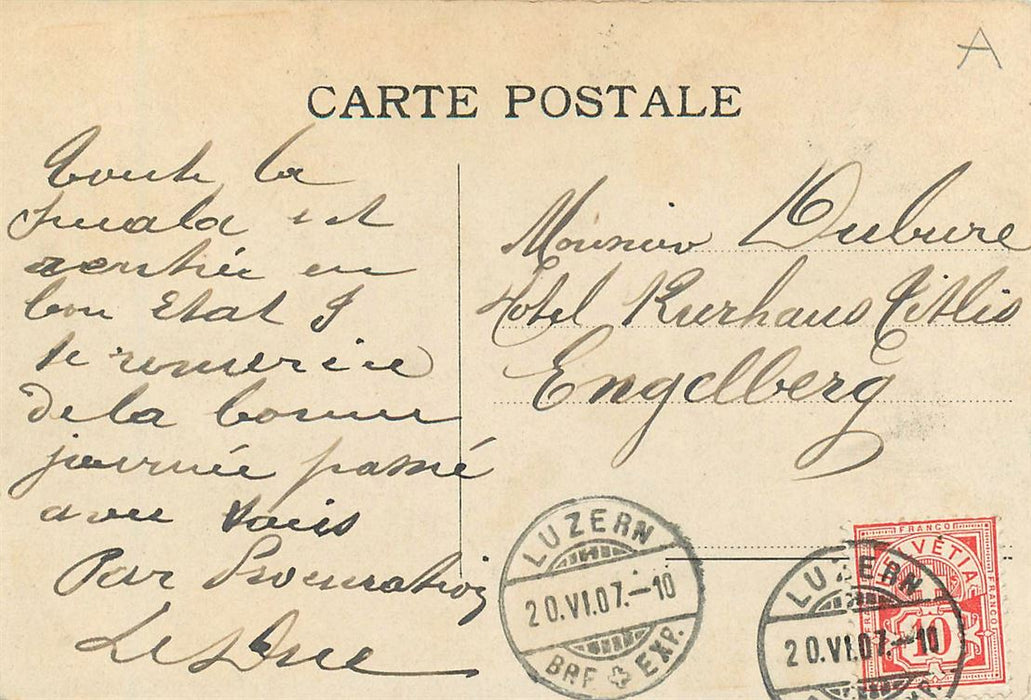 A
CARTE POSTALE
Toute la
smala est
rentrée en
bon Etat J
te remercie
de la bonne
journée passé
avec vous
Par Procuration
Le Duc
Monsieur Dubure
Hotel Kurhaus Titlis
Engelberg
LUZERN
20.VI.07.–10
BRF EXP.
FRANCO
HELVETIA
FRANCO
FRANCO
10
LUZERN
20.VI.07.–10